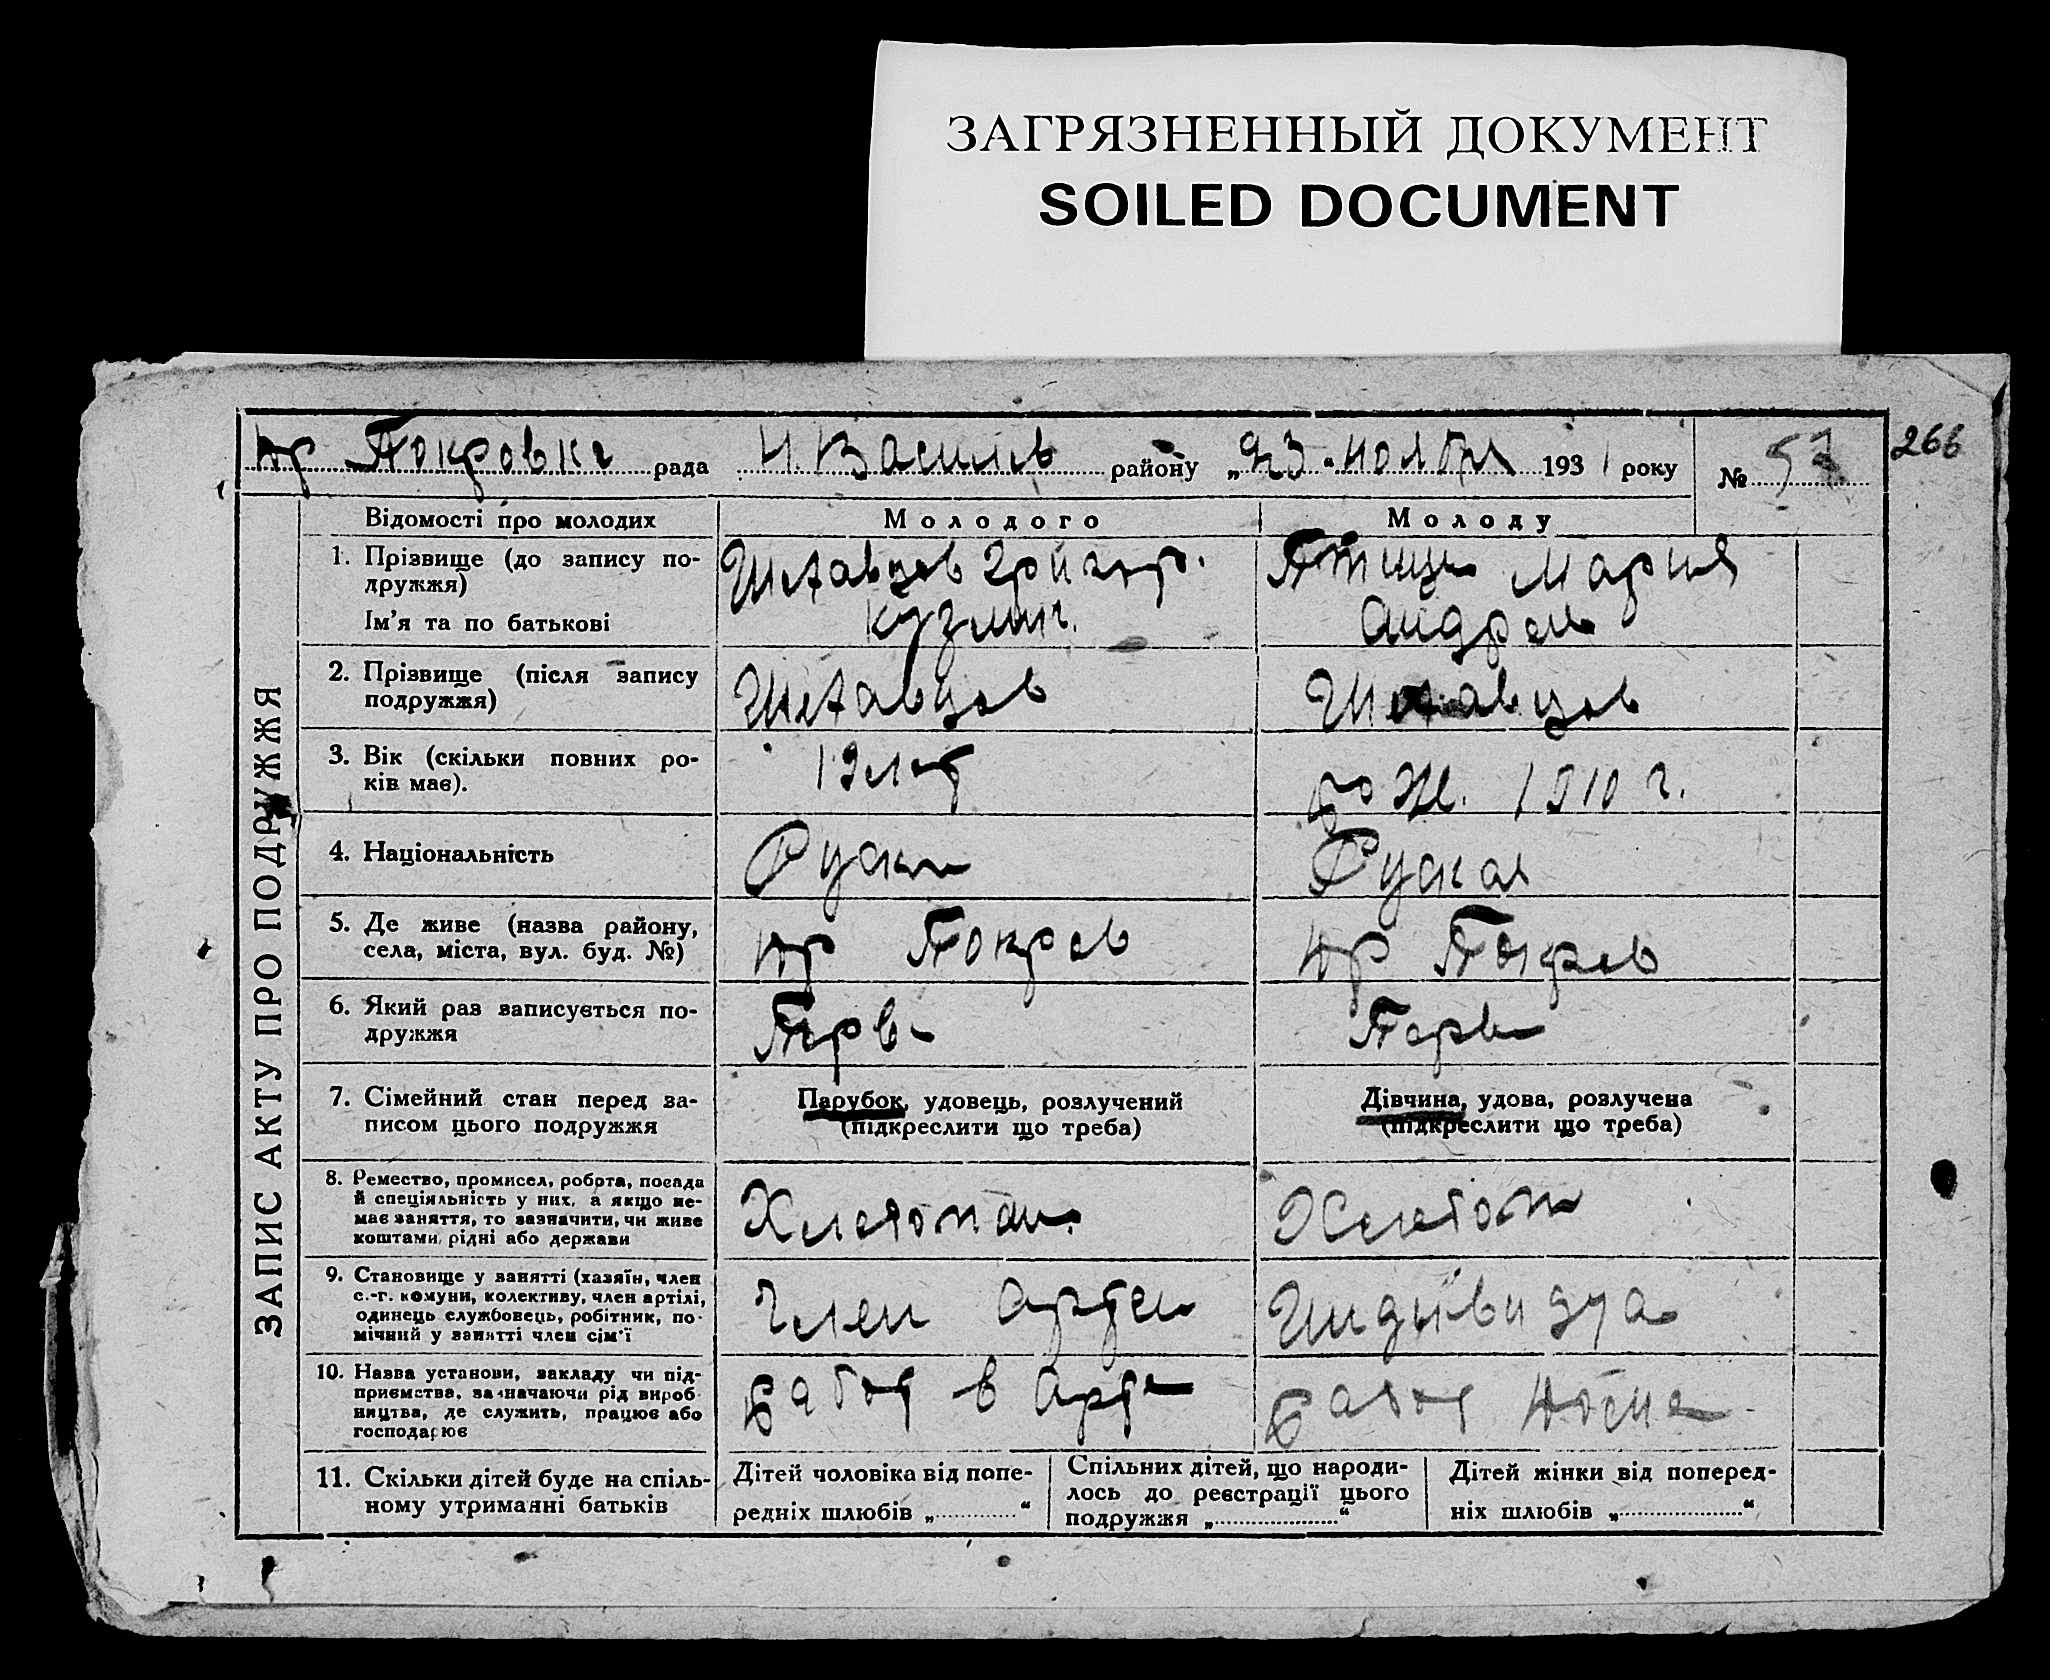 ЗАГРЯЗНЕННЫЙ ДОКУМЕНТ
SOILED DOCUMENT
266
Юр Покровка рада Н. Василев району „23“ ноября 1931 року № 57
ЗАПИС АКТУ ПРО ПОДРУЖЖЯ
Відомості про молодих Молодого Молоду
1. Прізвище (до запису по-
дружжя)
Ім'я та по батькові
Григор.
Кузмич.
Птицы Мария
Андрев
2. Прізвище (після запису
подружжя)
3. Вік (скільки повних ро-
ків має).
19 лет
1910 г.
4. Національність
Руски
Руская
5. Де живе (назва району,
села, міста, вул. буд. №)
Юр Покров
Юр Покров
6. Який раз записується по-
дружжя
Перв
Перв
7. Сімейний стан перед за-
писом цього подружжя
Парубок, удовець, розлучений
(підкреслити що треба)
Дівчина, удова, розлучена
(підкреслити що треба)
8. Ремество, промисел, робота, посада
й спеціяльність у них, а якщо не-
має заняття, то зазначити, чи живе
коштами рідні або держави
Хлетопаш
Хлетоп
9. Становище у занятті (хазяїн, член
с.-г. комуни, колективу, член артілі,
одинець службовець, робітник, по-
мічний у занятті член сім'ї
Член артел
Индивидуа
10. Назва установи, закладу чи під-
приємства, зазначаючи рід вироб-
ництва, де служить, працює або
господарює
в арте
11. Скільки дітей буде на спіль-
ному утриманні батьків
Дітей чоловіка від попе-
редніх шлюбів „ “
Спільних дітей, що народи-
лось до реєстрації цього
подружжя „ “
Дітей жінки від поперед-
ніх шлюбів „ “